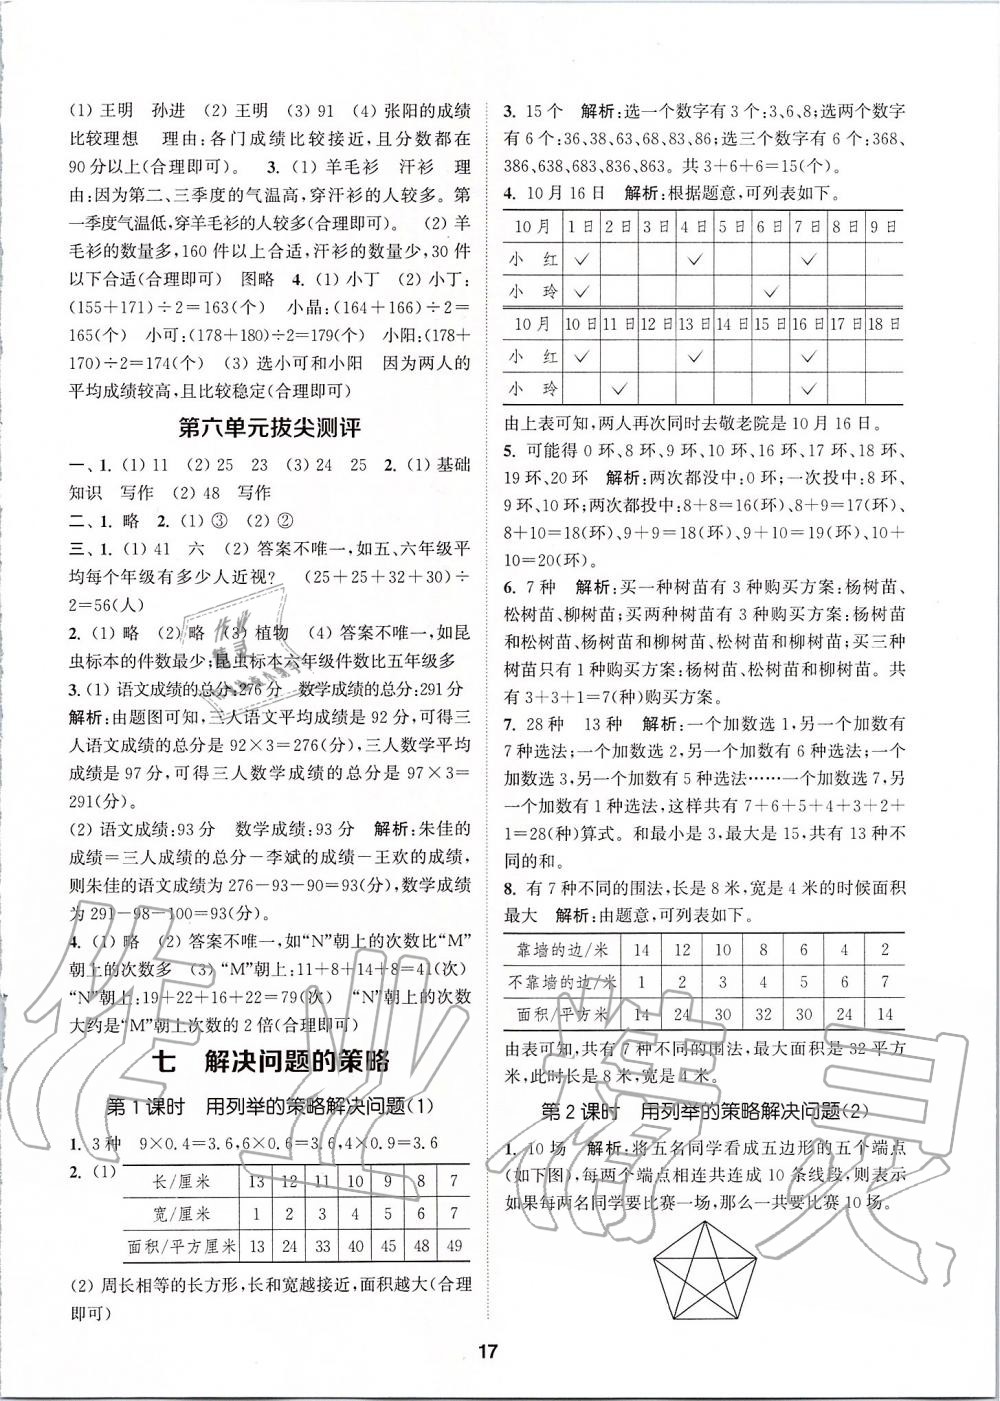 (1) 王明　孙进　(2) 王明　(3) 91　(4) 张阳的成绩
比较理想　理由:各门成绩比较接近,且分数都在
90分以上(合理即可)。　3. (1) 羊毛衫　汗衫　理
由:因为第二、三季度的气温高,穿汗衫的人较多。第
一季度气温低,穿羊毛衫的人较多(合理即可)。　(2) 羊
毛衫的数量多,160 件以上合适,汗衫的数量少,30 件
以下合适(合理即可)　图略　4. (1) 小丁　(2) 小丁:
(155+171)÷2=163(个)　小晶:(164+166)÷2=
165(个)　小可:(178+180)÷2=179(个)　小阳:(178+
170)÷2=174(个)　(3) 选小可和小阳　因为两人的
平均成绩较高,且比较稳定(合理即可)
第六单元拔尖测评
一、1. (1) 11　(2) 25　23　(3) 24　25　2. (1) 基础
知识　写作　(2) 48　写作
二、1. 略　2. (1) ③　(2) ②
三、1. (1) 41　六　(2) 答案不唯一,如五、六年级平
均每个年级有多少人近视?　(25+25+32+30)÷
2=56(人)
2. (1) 略　(2) 略　(3) 植物　(4) 答案不唯一,如昆
虫标本的件数最少;昆虫标本六年级件数比五年级多
3. (1) 语文成绩的总分:276 分　数学成绩的总分:291分
解析:由题图可知,三人语文平均成绩是 92 分,可得三
人语文成绩的总分是 92×3=276(分),三人数学平均
成绩是 97 分,可得三人数学成绩的总分是 97×3=
291(分)。
(2) 语文成绩:93 分　数学成绩:93 分　解析:朱佳的
成绩=三人成绩的总分-李斌的成绩-王欢的成绩,
则朱佳的语文成绩为 276-93-90=93(分),数学成绩
为 291-98-100=93(分)。
4. (1) 略　(2) 答案不唯一,如“N”朝上的次数比“M”
朝上的次数多　(3) “M”朝上:11+8+14+8=41(次)
“N”朝上:19+22+16+22=79(次)　“N”朝上的次数
大约是“M”朝上次数的 2 倍(合理即可)
七　解决问题的策略
第 1 课时　用列举的策略解决问题(1)
1. 3 种　9×0.4=3.6,6×0.6=3.6,4×0.9=3.6
2. (1)
长/厘米 13 12 11 10 9 8 7
宽/厘米 1 2 3 4 5 6 7
面积/平方厘米 13 24 33 40 45 48 49
(2) 周长相等的长方形,长和宽越接近,面积越大(合理
即可)
3. 15 个　解析:选一个数字有 3 个:3、6、8;选两个数字
有 6 个:36、38、63、68、83、86;选三个数字有 6 个:368、
386、638、683、836、863。共 3+6+6=15(个)。
4. 10 月 16 日　解析:根据题意,可列表如下。
10 月 1 日 2 日 3 日 4 日 5 日 6 日 7 日 8 日 9 日
小　红 ✓ ✓ ✓
小　玲 ✓ ✓
10 月 10 日 11 日 12 日 13 日 14 日 15 日 16 日 17 日 18 日
小　红 ✓ ✓ ✓
小　玲 ✓ ✓
由上表可知,两人再次同时去敬老院是 10 月 16 日。
5. 可能得 0 环、8 环、9 环、10 环、16 环、17 环、18 环、
19 环、20 环　解析:两次都没中:0 环;一次投中:8 环、
9 环、10 环;两次都投中:8+8=16(环)、8+9=17(环)、
8+10=18(环)、9+9=18(环)、9+10=19(环)、10+
10=20(环)。
6. 7 种　解析:买一种树苗有 3 种购买方案:杨树苗、
松树苗、柳树苗;买两种树苗有 3 种购买方案:杨树苗
和松树苗、杨树苗和柳树苗、松树苗和柳树苗;买三种
树苗只有 1 种购买方案:杨树苗、松树苗和柳树苗。共
有 3+3+1=7(种)购买方案。
7. 28 种　13 种　解析:一个加数选 1,另一个加数有
7 种选法;一个加数选 2,另一个加数有 6 种选法;一个
加数选 3,另一个加数有 5 种选法……一个加数选 7,另
一个加数有 1 种选法,这样共有 7+6+5+4+3+2+
1=28(种)算式。和最小是 3,最大是 15,共有 13 种不
同的和。
8. 有 7 种不同的围法,长是 8 米,宽是 4 米的时候面积
最大　解析:由题意,可列表如下。
靠墙的边/米 14 12 10 8 6 4 2
不靠墙的边/米 1 2 3 4 5 6 7
面积/平方米 14 24 30 32 30 24 14
由表可知,共有 7 种不同的围法,最大面积是 32 平方
米,此时长是 8 米,宽是 4 米。
第 2 课时　用列举的策略解决问题(2)
1. 10 场　解析:将五名同学看成五边形的五个端点
(如下图),每两个端点相连共连成 10 条线段,则表示
如果每两名同学要比赛一场,那么一共要比赛 10 场。
17
作业精灵